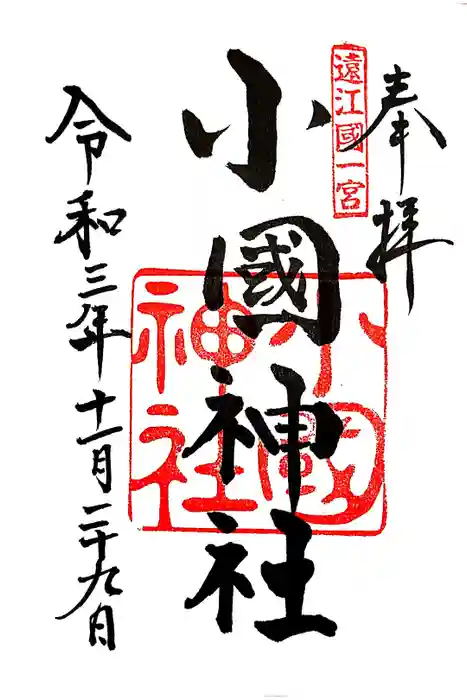 奉拝
遠江國一宮
小國神社
小國神社
令和三年十一月二十九日